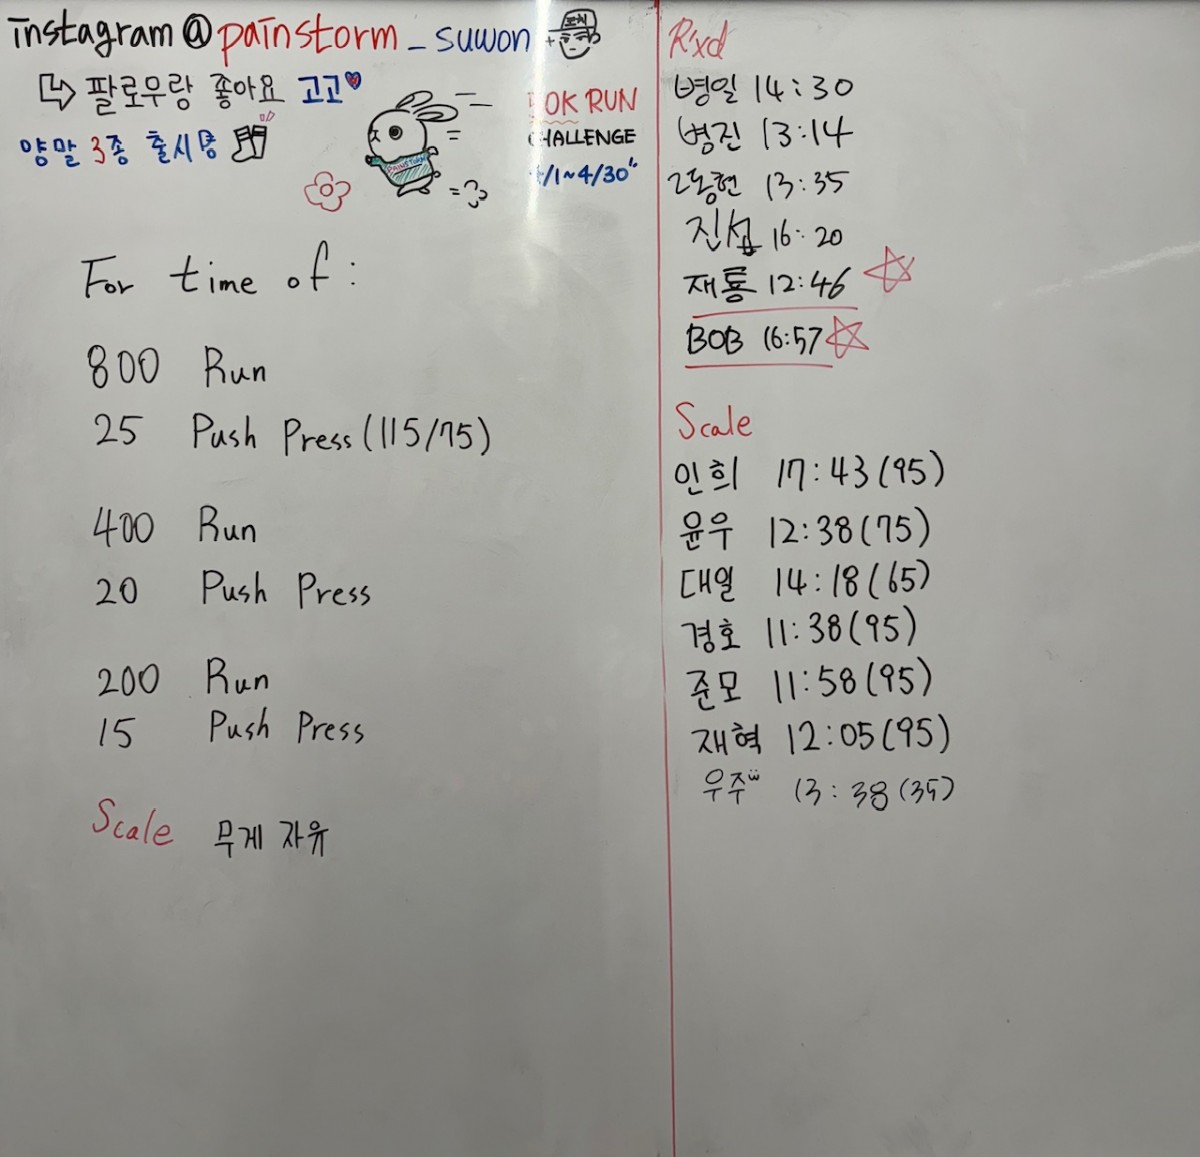 instagram@painstorm_suwon
코치
팔로우랑 좋아요 고고
양말 3종 출시중
PAINSTORM
OK RUN
CHALLENGE
/1~4/30"
For time of :
800 Run
25 Push Press (115/75)
400 Run
20 Push Press
200 Run
15 Push Press
Scale 무게 자유
R'xd
병일 14:30
병진 13:14
2동현 13:35
진섭 16:20
재룡 12:46
BOB 16:57
Scale
인희 17:43 (95)
윤우 12:38 (75)
대일 14:18 (65)
경호 11:38 (95)
준모 11:58 (95)
재혁 12:05 (95)
우주 13:38 (35)